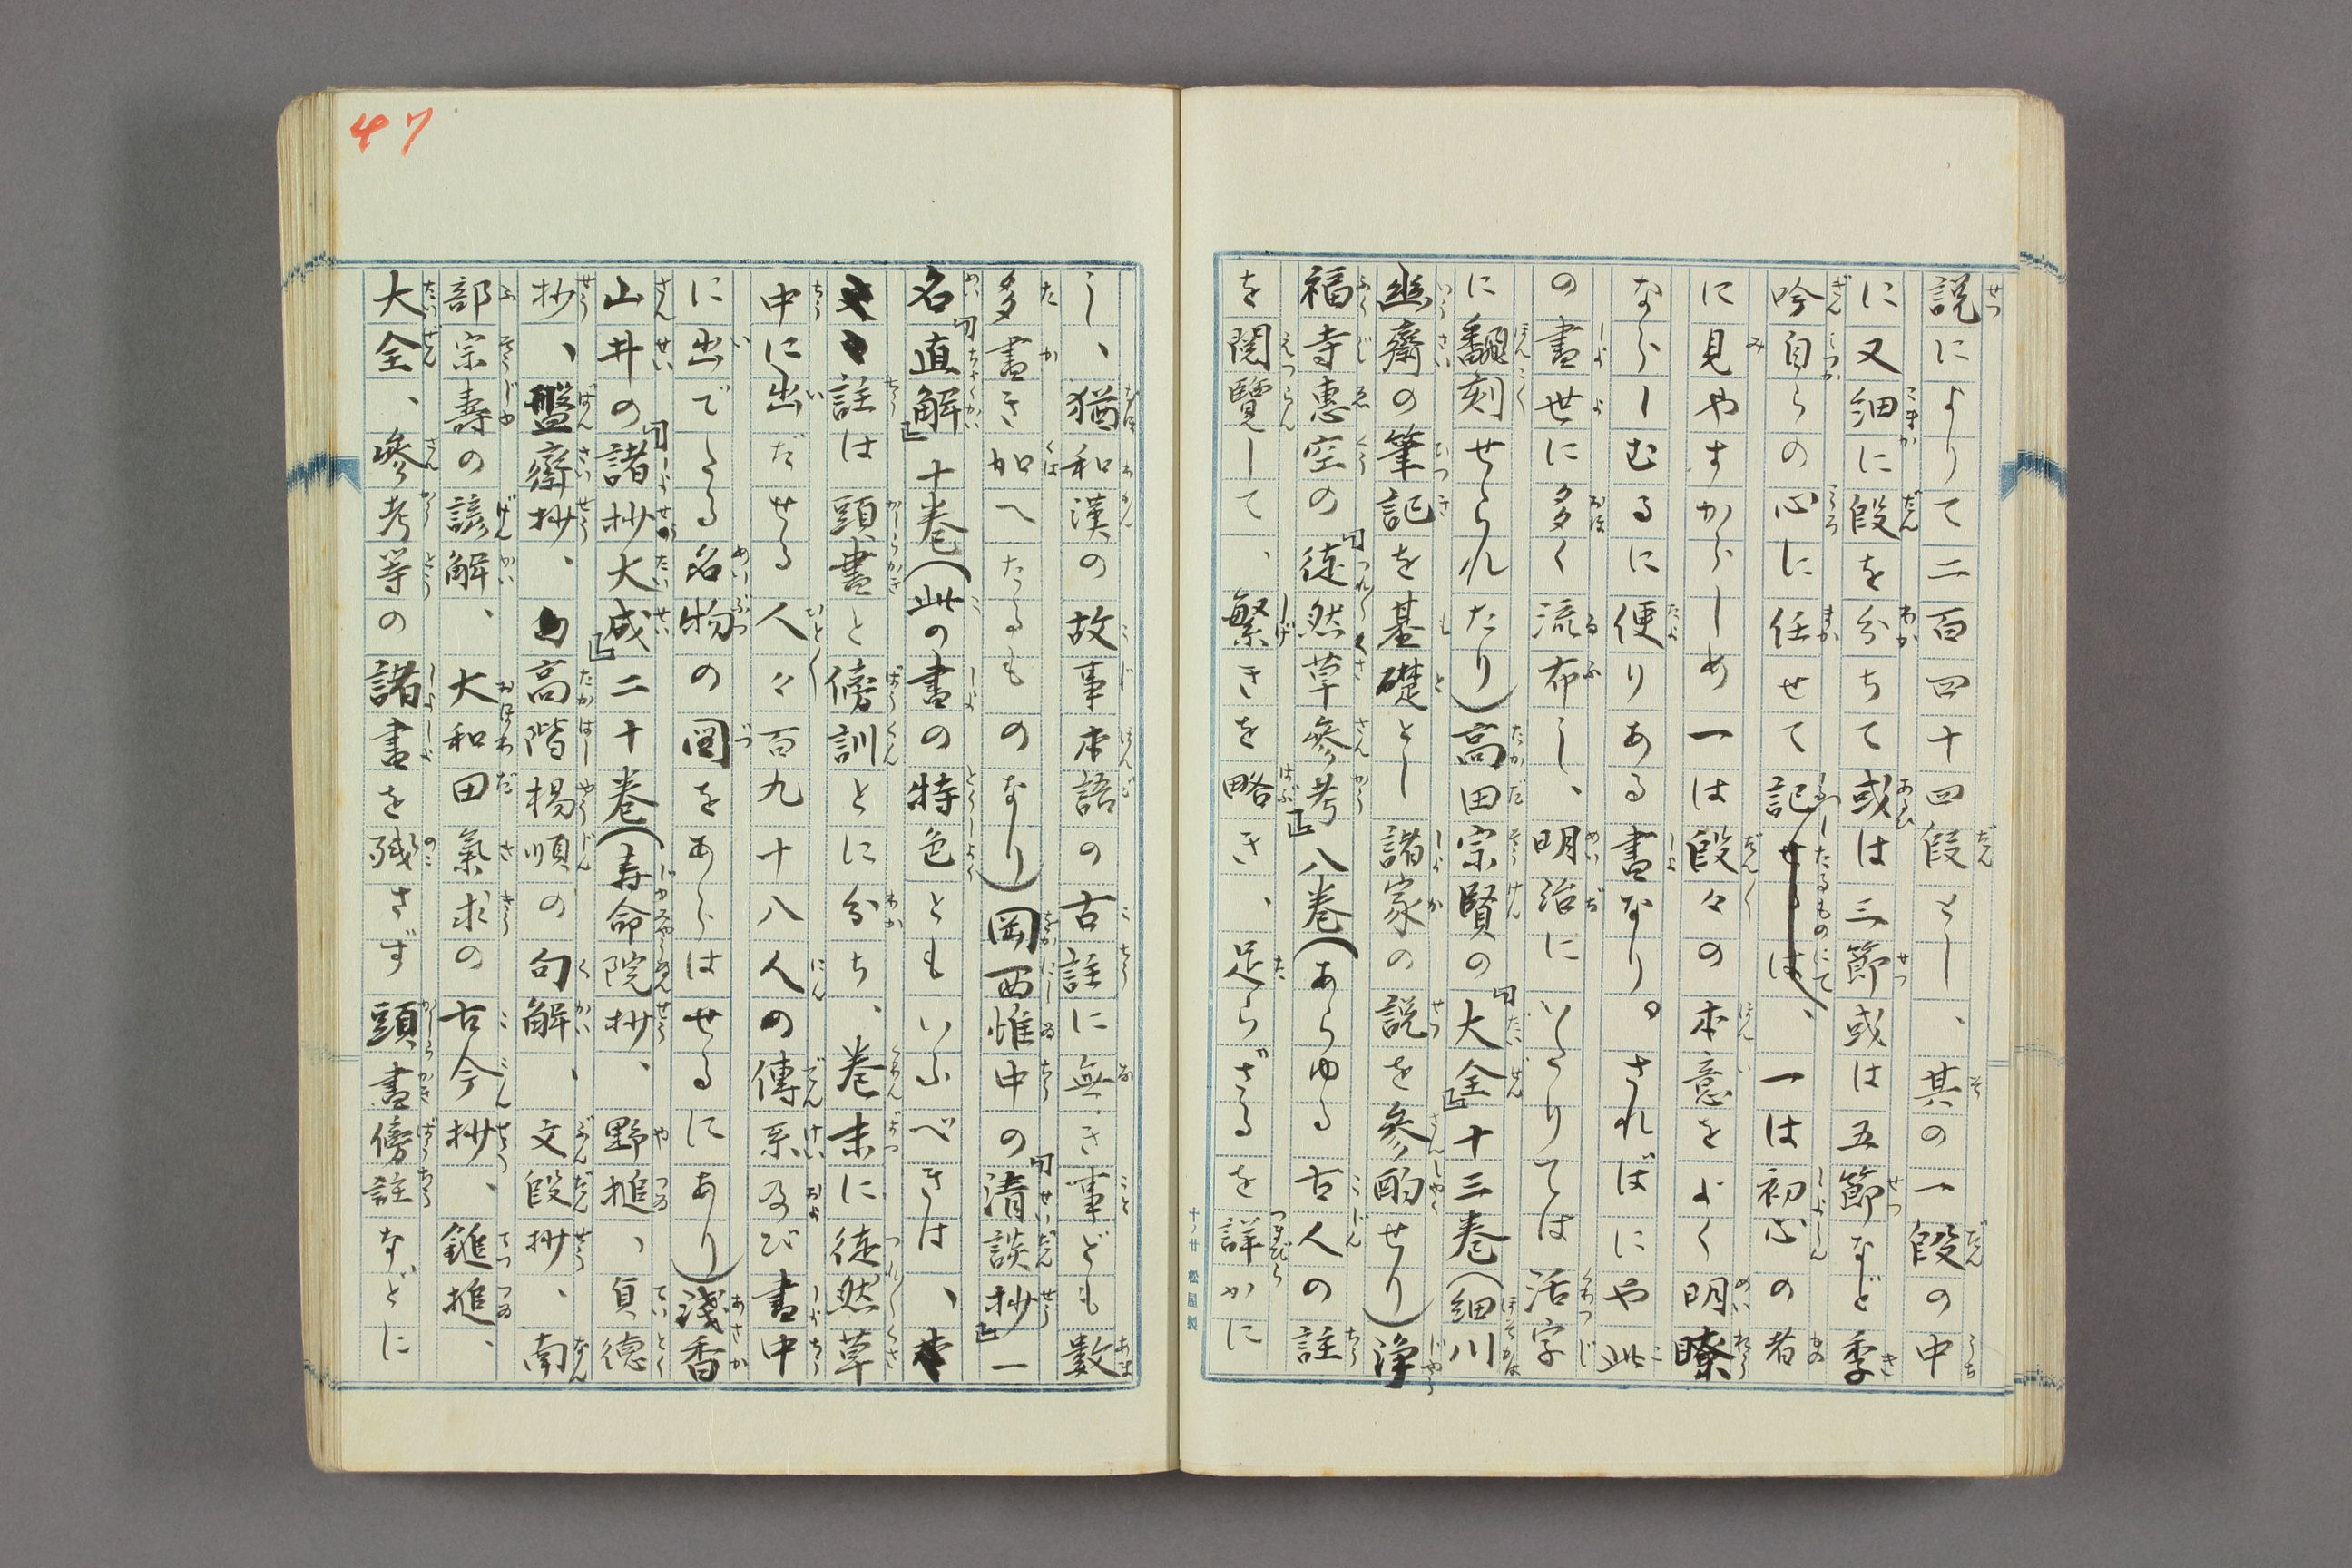 説によりて二百四十四段とし、其の一段の中
に又細に段を分ちて或は三節或は五節など季
吟自らの心に任せて記したるものにて、一は初心の者
に見やすからしめ一は段々の本意をよく明瞭
ならしむるに便りある書なり。さればにや此
の書世に多く流布し、明治にいたりては活字
に飜刻せられたり)高田宗賢の『大全』十三巻(細川
幽齋の筆記を基礎とし諸家の説を參酌せり)浄
福寺惠空の『徒然草參考』八巻(あらゆる古人の註
を閲覽して、繁きを略き、足らざるを詳かに
し、猶和漢の故事本語の古註に無き事ども數
多書き加へたるものなり)岡西惟中の『清談抄』一
名『直解』十巻(此の書の特色ともいふべきは、
註は頭書と傍訓とに分ち、巻末に徒然草
中に出だせる人々百九十八人の傳系及び書中
に出でたる名物の図をあらはせるにあり)淺香
山井の『諸抄大成』二十巻(寿命院抄、野搥、貞徳
抄、盤齋抄、高階楊順の句解、文段抄、南
部宗壽の諺解、大和田氣求の古今抄、鎚搥、
大全、參考等の諸書を殘さず頭書傍註などに
47
十ノ廿 松屋製